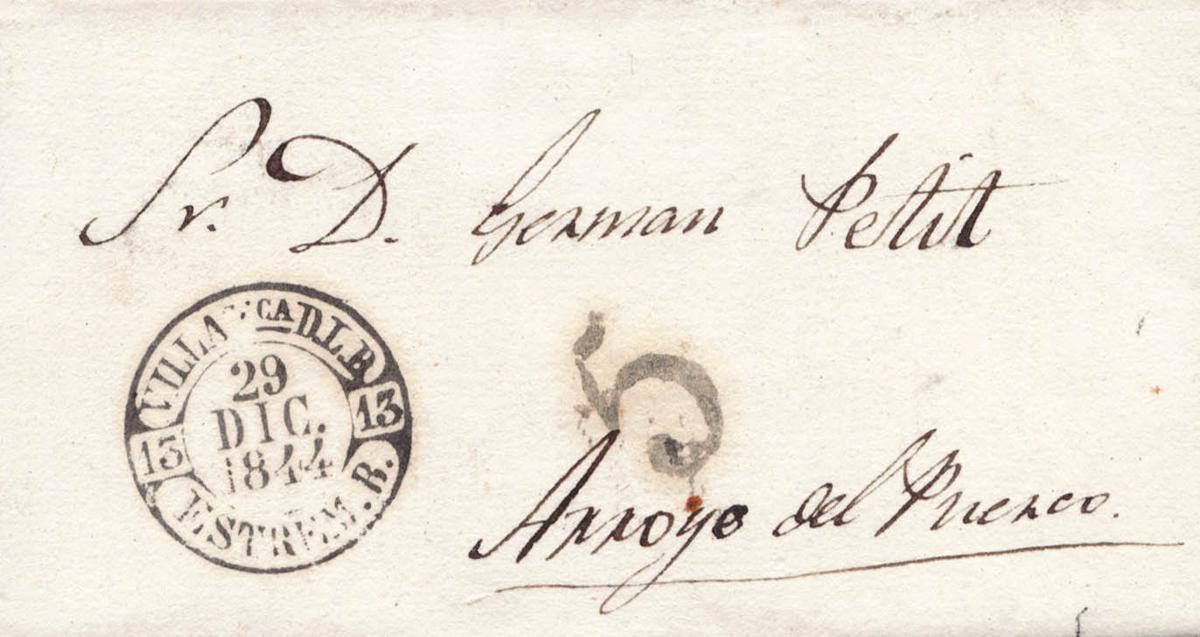 Sr. D. German Petit
VILLAFCA D.L.B
13
29
DIC.
1844
13
ESTREM. B.
5
Arroyo del Puerco.